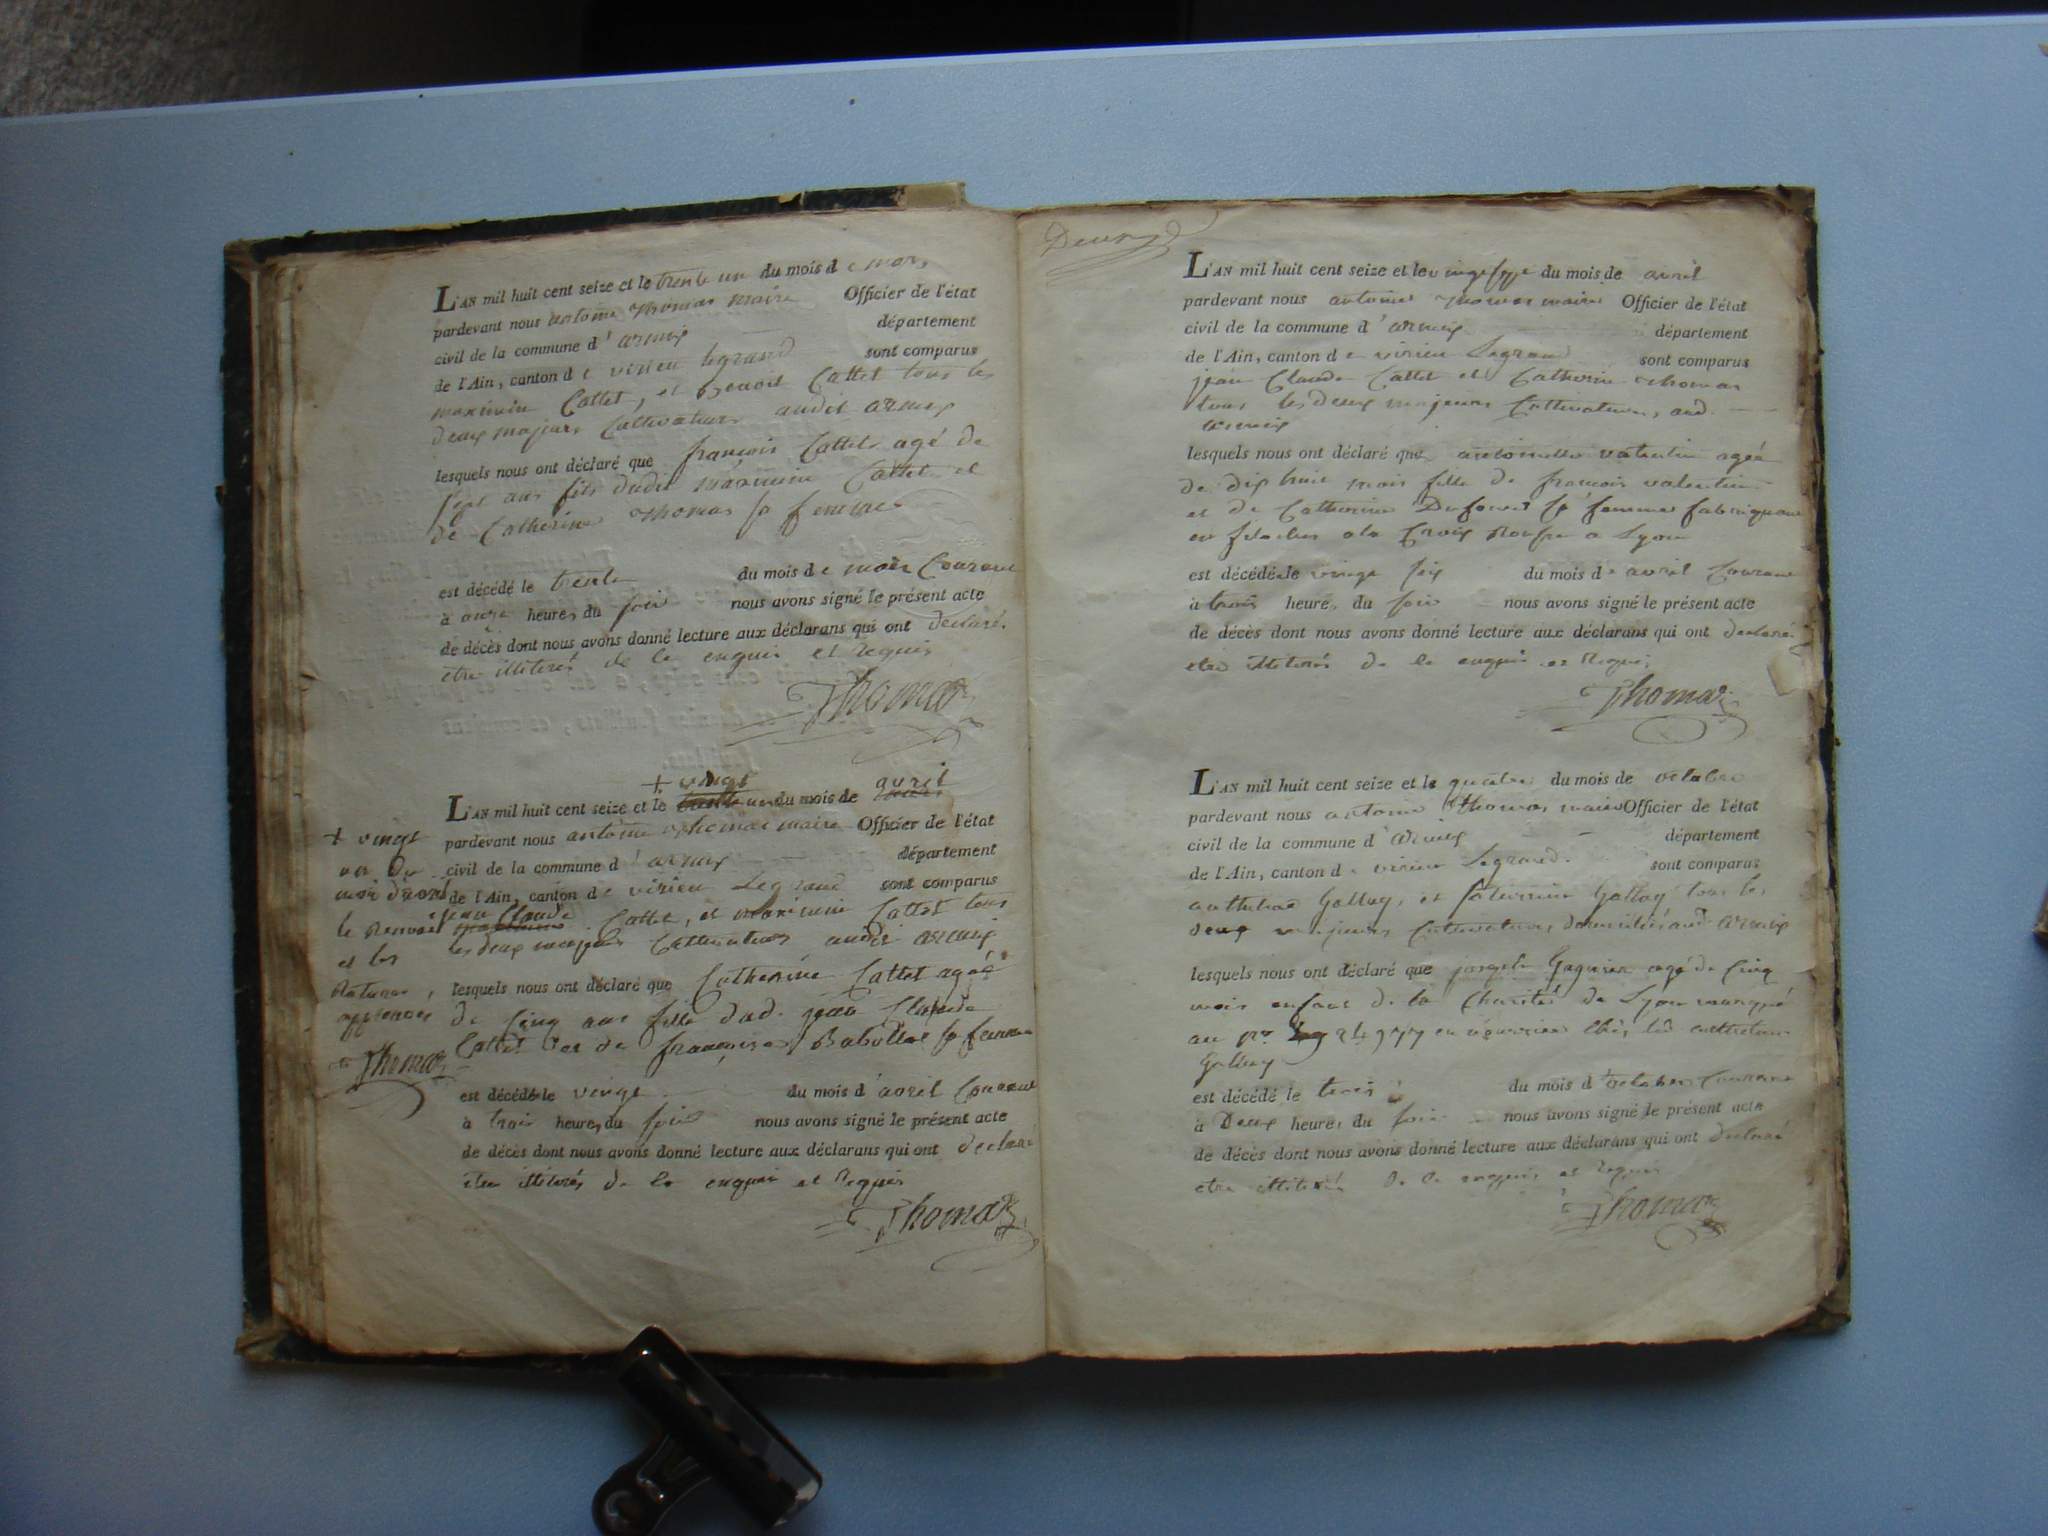 L'AN mil huit cent seize et le trente un du mois de mars
pardevant nous antoine thomas maire Officier de l'état
civil de la commune d'armix département
de l'Ain, canton de virieu legrand sont comparus
maximin Cattet, et Benoit Cattet tous les
deux majeurs Cultivateurs audit armix
lesquels nous ont déclaré que françois Cattet agé de
sept ans fils dudit maximin Cattet et
de Catherine thomas sa femme
est décédé le trente du mois de mars Courant
à onze heures du soir nous avons signé le présent acte
de décès dont nous avons donné lecture aux déclarans qui ont declaré
etre illiterés de ce enquis et requis
Thomas
+ vingt avril
L'AN mil huit cent seize et le trente un du mois de mars
pardevant nous antoine thomas maire Officier de l'état
civil de la commune d'armix département
de l'Ain, canton de virieu Legrand sont comparus
jean Claude Cattet, et maximin Cattet tous
les deux majeurs Cultivateurs audit armix
lesquels nous ont déclaré que Catherine Cattet agée
de Cinq ans fille dud. jean Claude
Cattet et de françoise Babollat sa femme
est décédée le vingt du mois d'avril Courant
à trois heures du soir nous avons signé le présent acte
de décès dont nous avons donné lecture aux déclarans qui ont declaré
etre illiterés de ce enquis et Requis
Thomas
+ vingt
un du
mois d'avril
le Renvoi
et les
Ratures
approuvés
Thomas
Deux
L'AN mil huit cent seize et le vingt sept du mois de avril
pardevant nous antoine thomas maire Officier de l'état
civil de la commune d'armix département
de l'Ain, canton de virieu Legrand sont comparus
jean Claude Cattet et Catherine thomas
tous les deux majeurs Cultivateurs, aud.
armix
lesquels nous ont déclaré que antoinette valentin agée
de dix huit mois fille de françois valentin
et de Catherine Dufour sa femme fabriquant
en a la Croix Rousse a Lyon
est décédée le vingt six du mois de avril Courant
à trois heures du soir nous avons signé le présent acte
de décès dont nous avons donné lecture aux déclarans qui ont declaré
etre illiterés de ce enquis et Requis
Thomas
L'AN mil huit cent seize et le quatre du mois de octobre
pardevant nous antoine thomas maire Officier de l'état
civil de la commune d'armix département
de l'Ain, canton de virieu Legrand. sont comparus
anthelme Gallay, et Gallay tous les
deux majeurs Cultivateurs domiciliés aud. armix
lesquels nous ont déclaré que joseph Gagnier agé de Cinq
mois enfant de la Charité de Lyon marqué
au nro 24977 en nourrice chés led. anthelme
Gallay
est décédé le trois du mois d'octobre Courant
à Deux heures du soir nous avons signé le présent acte
de décès dont nous avons donné lecture aux déclarans qui ont declaré
etre illiterés de ce enquis et requis
Thomas